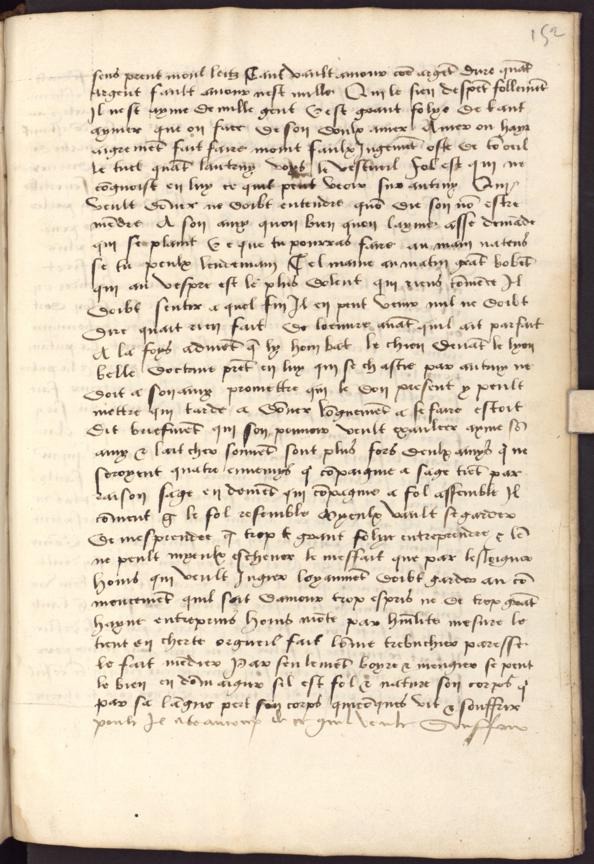 152
sens prent moul leitz Tant vault amour cõe argẽt dure quãt
argent fault amour nest nulle Qui le sien despẽt follemẽt
Il nest ayme de nulle gent Cest grant folye de tant
aymer que on face de son doulx amer Amer ou hayr
aigremẽt fait faire moult faulx Jugemẽt oste de toeil
le tuel quãt lautruy le vestiuil fol est qui ne
cõgnoist en luy ce quil peut veoir sur autruy Qui
veult dõner ne doibt entendre quõ die son nõ estre
mẽdre A son amy quon bien quon layme asse demãde
qui se plaint Ce que tu pourras faire au main natens
se tu peulx lendemain Tel maine au matin grãt
qui au vespre est le plus dolent qui riens cõmẽce Il
doibt sentir a quel fin Il en peut venir nul ne doibt
dire quait rien fait de loeuure auãt quil ait parfait
A la foys aduient q̃ hom bat le chien deuãt le lyon
belle doctrine prẽt en luy qui se chastie par autruy ne
doit a son amy promettre qui le don present y peult
mettre qui tarde a dõner lõguemẽt a se faire estoit
dit briefmẽt qui son pouuoir veult exaulcer ayme sõ
amy & lait cher souuẽt sont plus fors deulx amys q̃ ne
seroyent quatre ennemys q̃ cõpaignie a sage tiẽt par
raison sage en deuiẽt qui cõpaignie a fol assemble Il
cõuient q̃ le fol resemble Myeulx vault se garder
de mesprendre q̃ trop grant folye entreprendre & lẽ
ne peult myeulx escheuer le meffait que par lesloigner
homs qui veult Jugier loyaument doibt garder au cõ
mencement quil soit damour trop espris ne de trop grãt
hayne entreprins homs mõte par hũilite mesure le
tient en cherte orgueil fait lõme trebuchier paresse
le fait medier Par seulemẽt boyre & mengier se peut
le bien en dõmaigier sil est fol & nature son corps q̃
par sa lãgue pert son corps quiecques vit & souffrir
peult Il a beaucoup de ce quil veult Souffrir